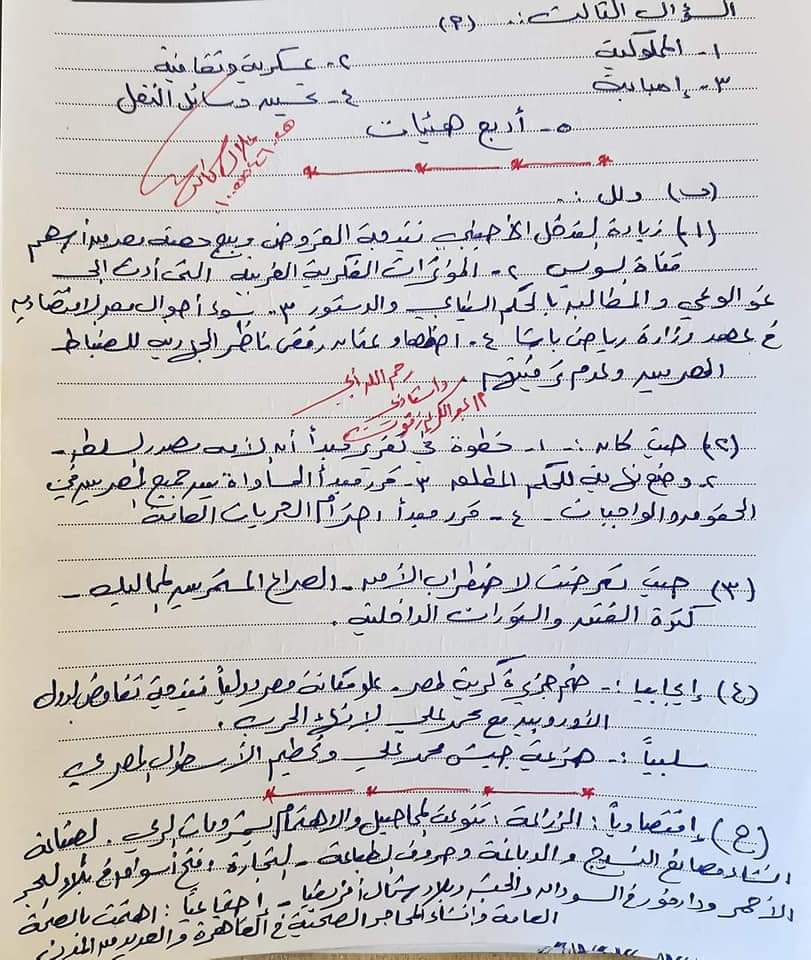 السؤال الثالث :. (م)
١- المملوكية ٢- عسكرية وثقافية
٣- إمبابة ٤- تحسين وسائل النقل
٥- أربع هيئات
(ب) دلل :.
(١) زيادة التدخل الأجنبي نتيجة القروض وبيع حصة مصر من أسهم
قناة السويس ٢- المؤثرات الفكرية الغربية التى أدت إلى
نمو الوعي والمطالبة بالحكم النيابي والدستور ٣- سوء أحوال مصر الاقتصادية
في عهد وزارة رياض باشا ٤- اضطهاد عثمان رفقى ناظر الجهادية للضباط
المصريين وعدم ترقيتهم .
رحم الله أبي
وأستاذي
(٢) حيث كان :- ١- خطوة في تقرير مبدأ أن الأمة مصدر السلطة -
٢- وضع نهاية للحكم المطلق ٣- قرر مبدأ المساواة بين جميع المصريين في
الحقوق والواجبات - ٤- قرر مبدأ احترام الحريات العامة
(٣) حيث تعرضت لاضطراب الأمن - الصراع المستمر بين المماليك -
كثرة الفتن والثورات الداخلية .
(٤) إيجابيا :- ضم جزيرة كريت لمصر - علو مكانة مصر دولياً نتيجة تفاوض الدول
الأوروبية مع محمد علي لإنهاء الحرب .
سلبياً :- هزيمة جيش محمد علي وتحطيم الأسطول المصري
(ج) إقتصادياً : الزراعة : تنوعت المحاصيل والاهتمام بمشروعات الري . الصناعة
انشاء مصانع النسيج والدباغة وحروف الطباعة - التجارة وفتح أسواق في بلاد البحر
الأحمر ودارفور في السودان والحبشة وبلاد شمال أفريقيا - إجتماعياً : اهتمت بالصحة
العامة وانشاء المحاجر الصحية في القاهرة والعديد من المدن